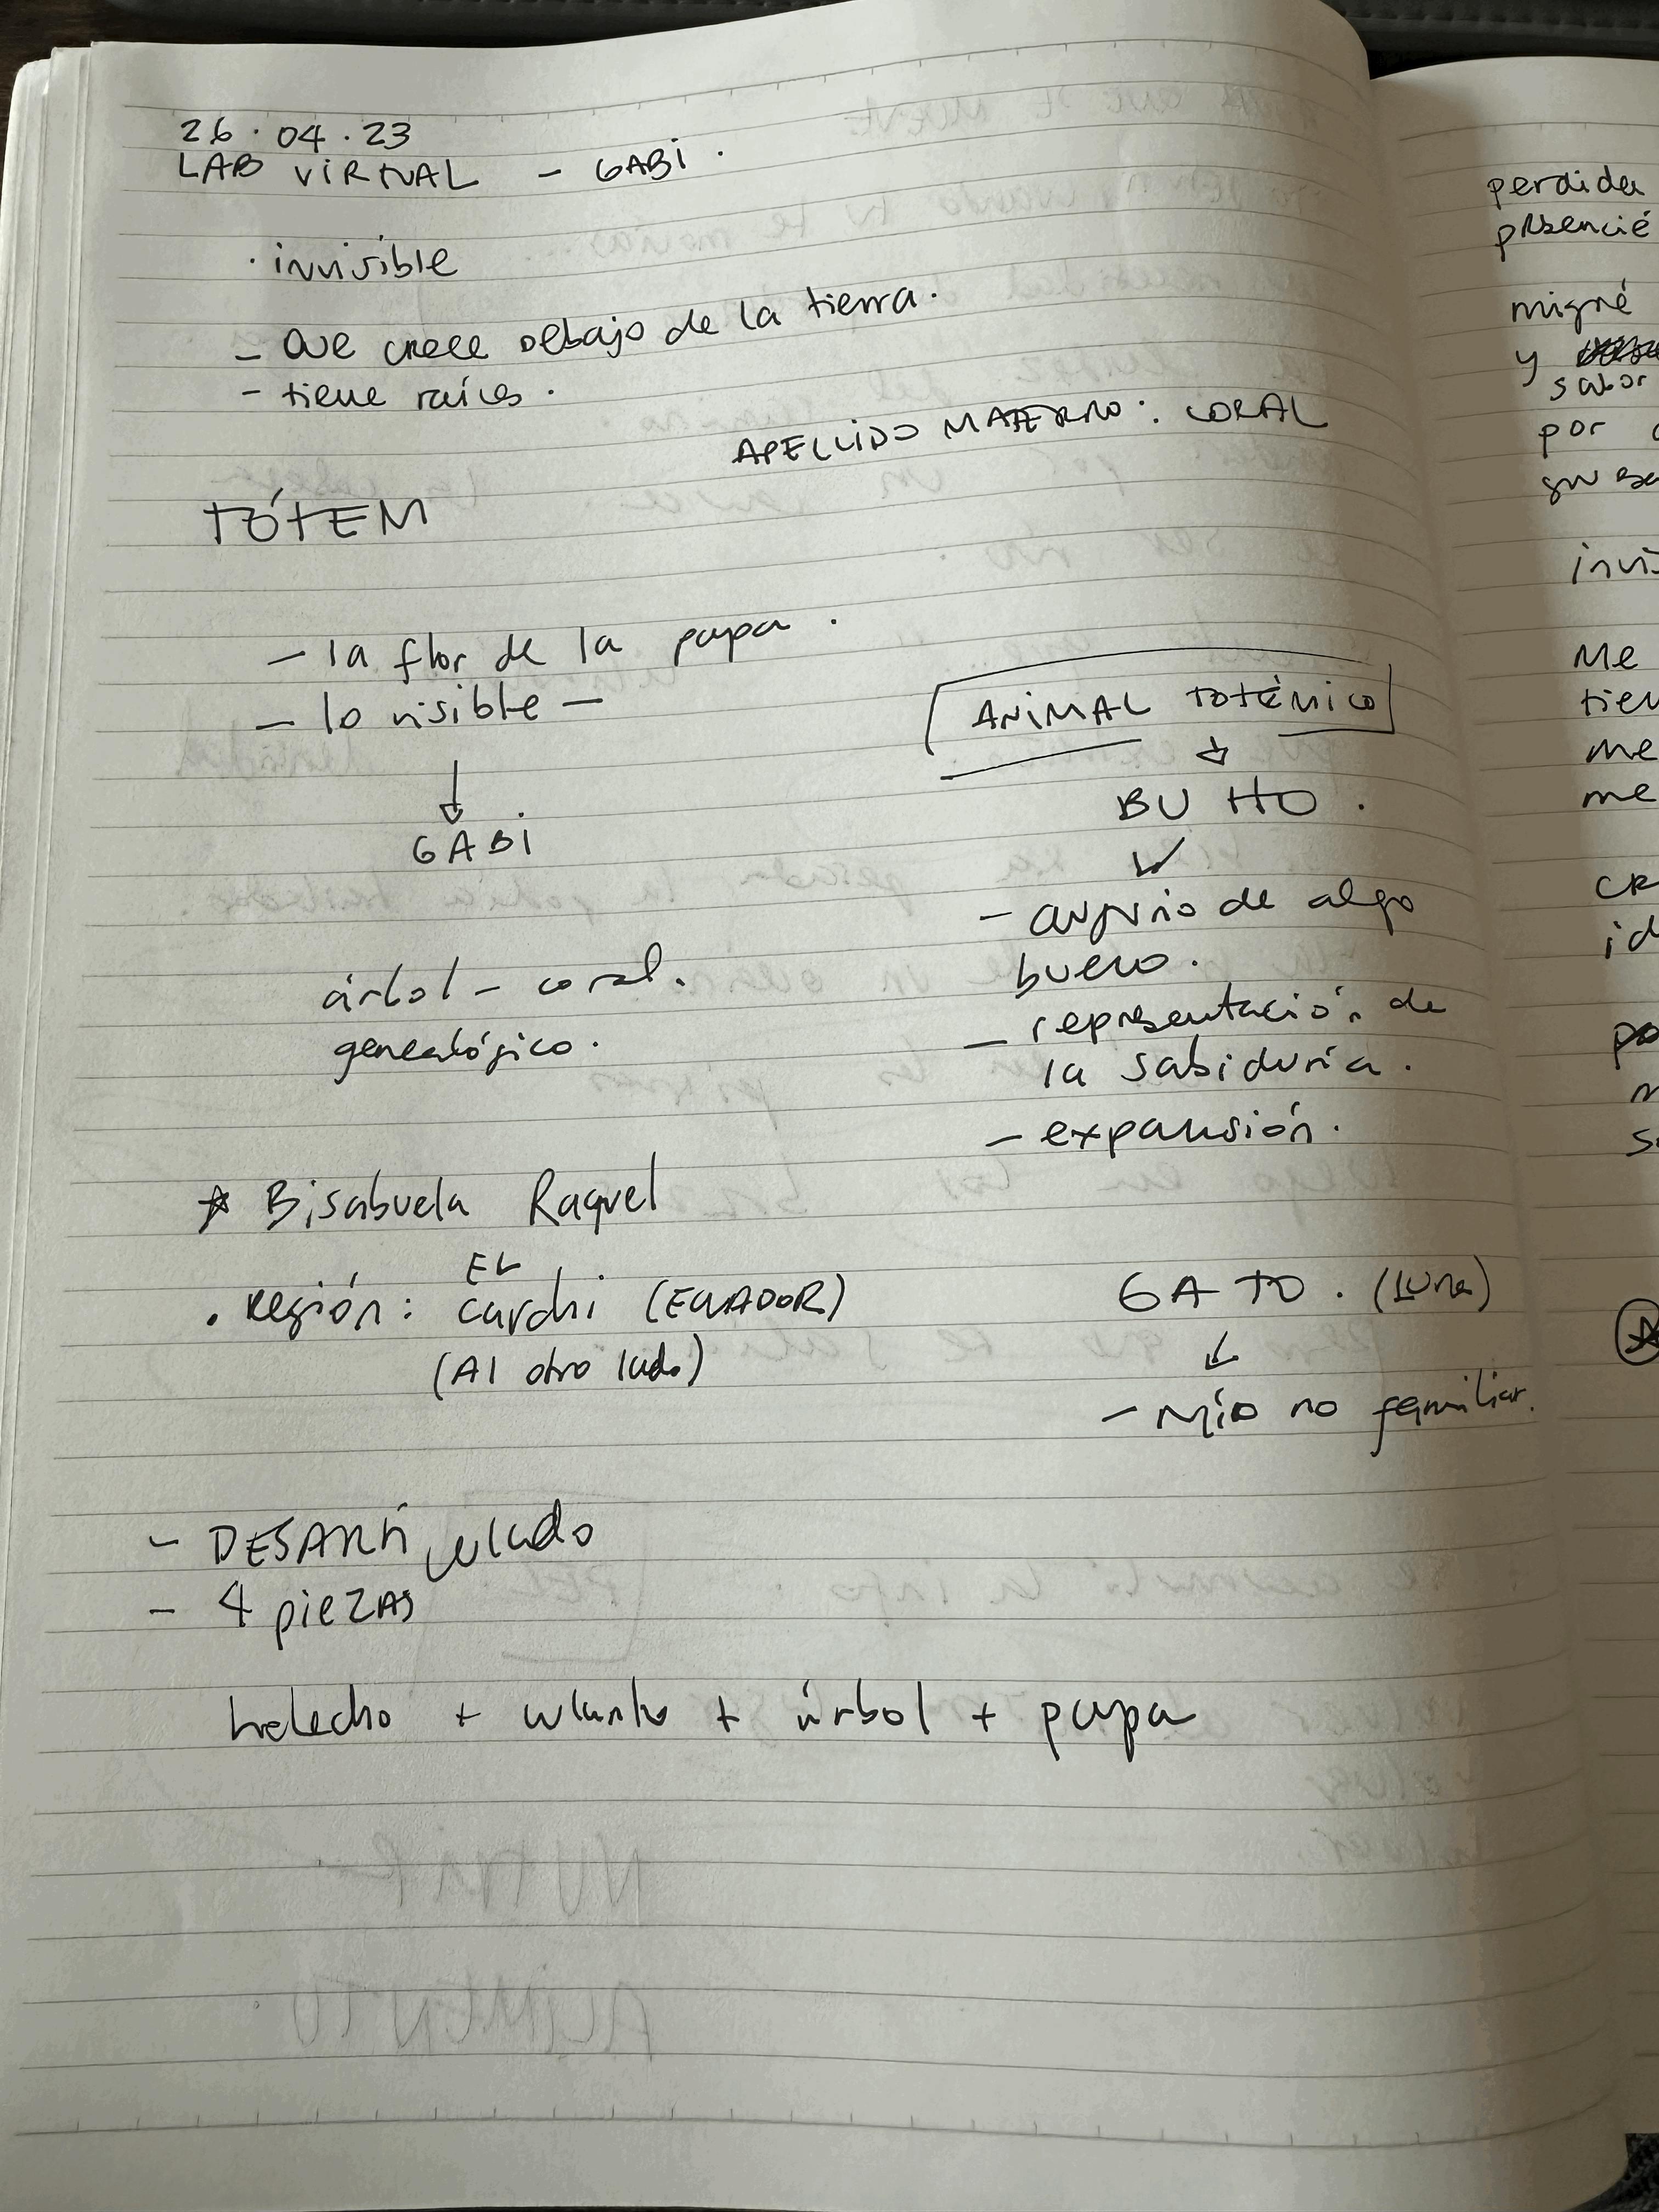 26 · 04 · 23
LAB VIRTUAL - GABI .
· invisible
- QUE crece debajo de la tierra.
- tiene raíces .
APELLIDO MATERNO : CORAL
TÓTEM
- la flor de la papa .
- lo visible -
↓
GABI
árbol - coral.
genealógico .
ANIMAL TOTÉMICO
↓
BUHO .
↓
- augurio de algo
bueno .
- representación de
la sabiduría .
- expansión .
* Bisabuela Raquel
. Región : EL Carchi (ECUADOR)
(Al otro lado)
GATO . (LUNA)
↓
- Mío no familiar.
- DESARTICULADO
- 4 piezas
helecho + + árbol + papa
perdida
presencié
migré
y
sabor
por
Me
me
me